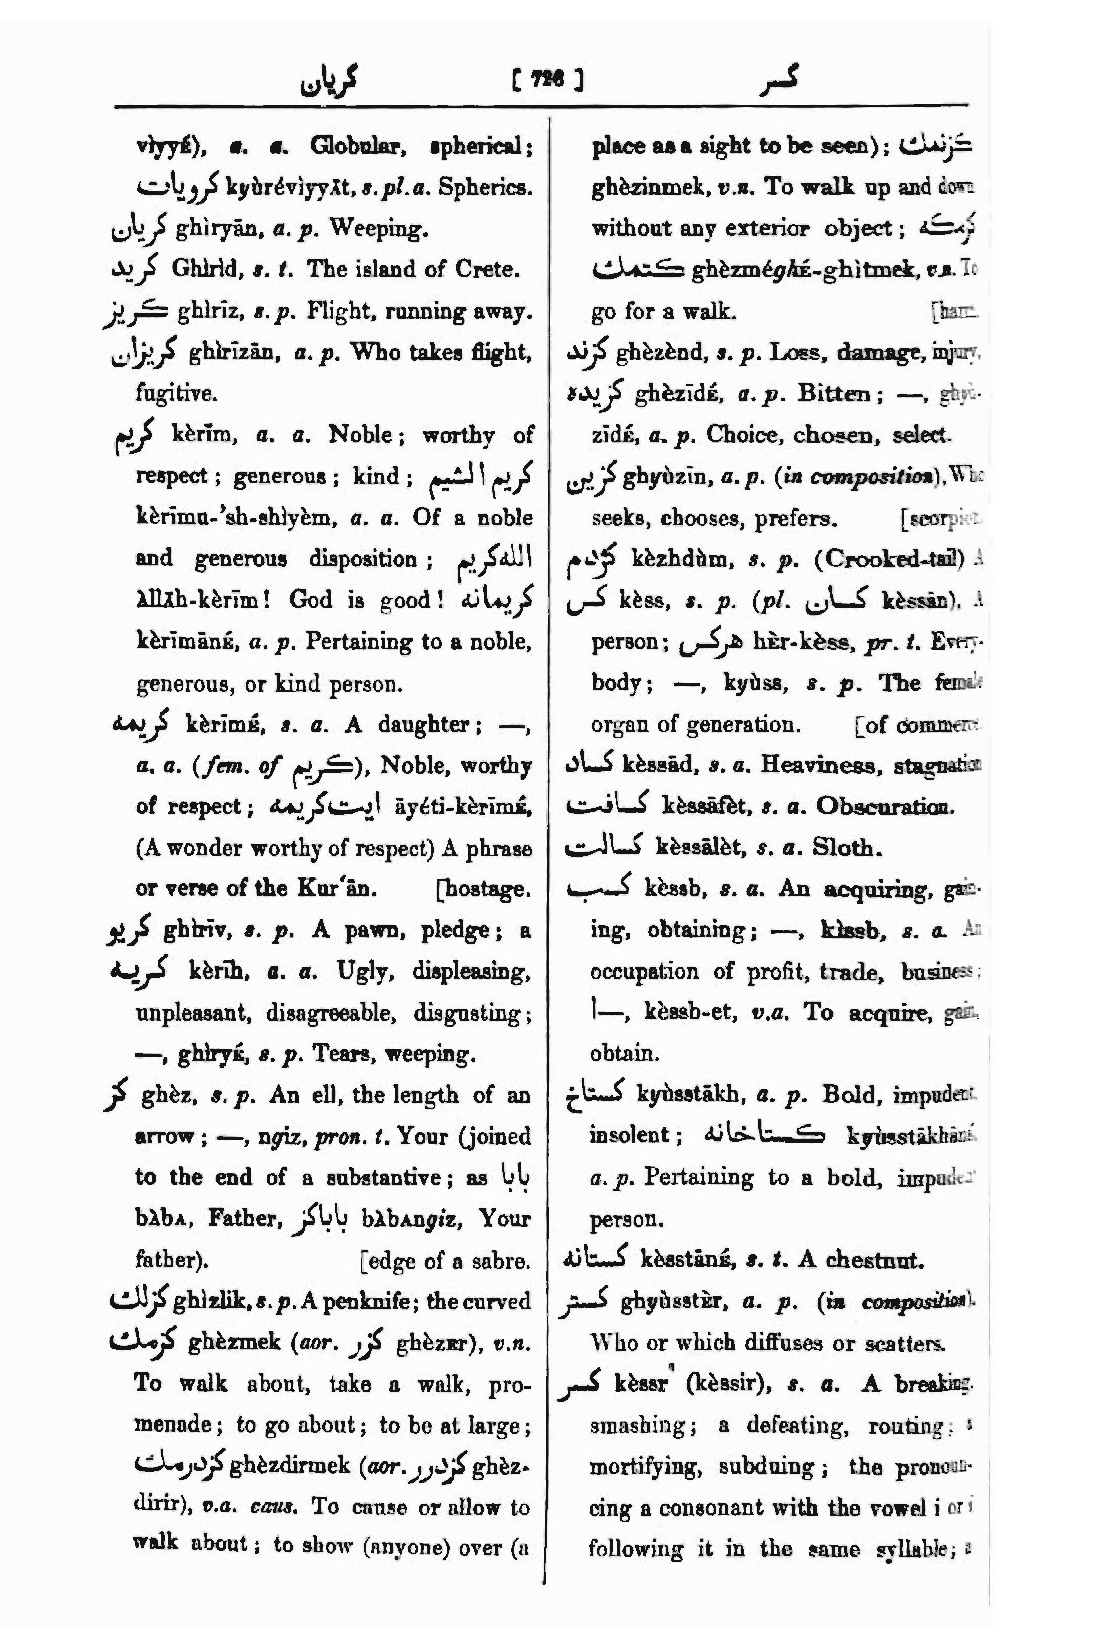 گریان [ 726 ] کسر
vìyyé), a. a. Globular, spherical;
کرویات kyùrévìyyāt, s. pl. a. Spherics.
گریان ghìryān, a. p. Weeping.
گرید Ghìrìd, s. t. The island of Crete.
گریز ghìrīz, s. p. Flight, running away.
گریزان ghìrīzān, a. p. Who takes flight,
fugitive.
کریم kèrīm, a. a. Noble; worthy of
respect; generous; kind; کریم الشیم
kèrīmu-'sh-shìyèm, a. a. Of a noble
and generous disposition; الله کریم
àllāh-kèrīm! God is good! کریمانه
kèrīmāné, a. p. Pertaining to a noble,
generous, or kind person.
کریمه kèrīmé, s. a. A daughter; —,
a. a. (fem. of کریم), Noble, worthy
of respect; ایت کریمه āyéti-kèrīmé,
(A wonder worthy of respect) A phrase
or verse of the Kur'ān. [hostage.
گریو ghìrīv, s. p. A pawn, pledge; a
کریه kèrīh, a. a. Ugly, displeasing,
unpleasant, disagreeable, disgusting;
—, ghìryé, s. p. Tears, weeping.
گز ghèz, s. p. An ell, the length of an
arrow; —, ngiz, pron. t. Your (joined
to the end of a substantive; as بابا
bàbᴀ, Father, باباکز bàbᴀngiz, Your
father). [edge of a sabre.
گزلك ghìzlik, s. p. A penknife; the curved
گزمك ghèzmek (aor. گزر ghèzᴇr), v.n.
To walk about, take a walk, pro-
menade; to go about; to be at large;
گزدرمك ghèzdirmek (aor. گزدرر ghèz-
dirir), v.a. caus. To cause or allow to
walk about; to show (anyone) over (a
place as a sight to be seen); گزنمك
ghèzinmek, v.n. To walk up and down
without any exterior object; گزمکه
کتمك ghèzméghé-ghìtmek, v.n. To
go for a walk. [harm.
گزند ghèzènd, s. p. Loss, damage, injury,
گزیده ghèzīdé, a. p. Bitten; —, ghyù-
zīdé, a. p. Choice, chosen, select.
گزین ghyùzīn, a. p. (in composition), Who
seeks, chooses, prefers. [scorpion.
کژدم kèzhdùm, s. p. (Crooked-tail) A
کس kèss, s. p. (pl. کسان kèssān), A
person; هرکس hèr-kèss, pr. t. Every-
body; —, kyùss, s. p. The female
organ of generation. [of commerce.
کساد kèssād, s. a. Heaviness, stagnation
کسافت kèssāfèt, s. a. Obscuration.
کسالت kèssālèt, s. a. Sloth.
کسب kèssb, s. a. An acquiring, gain-
ing, obtaining; —, kìssb, s. a. An
occupation of profit, trade, business;
—ا, kèssb-et, v.a. To acquire, gain,
obtain.
کستاخ kyùsstākh, a. p. Bold, impudent,
insolent; کستاخانه kyùsstākhāné,
a. p. Pertaining to a bold, impudent
person.
کستانه kèsstāné, s. t. A chestnut.
کستر ghyùsstèr, a. p. (in composition).
Who or which diffuses or scatters.
کسر kèssr (kèssir), s. a. A breaking,
smashing; a defeating, routing; a
mortifying, subduing; the pronoun-
cing a consonant with the vowel i or ì
following it in the same syllable; a